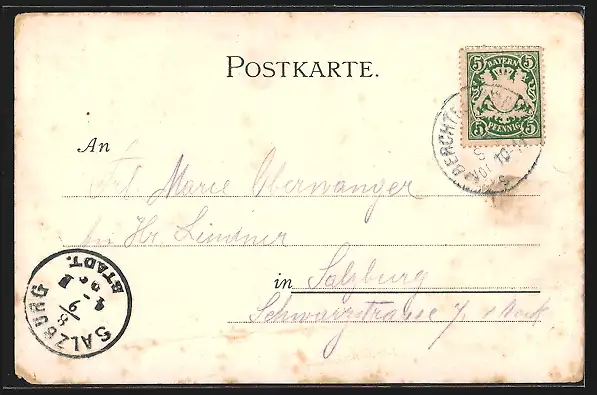 POSTKARTE.
5 BAYERN 5
5 PFENNIG 5
BERCHTE
10-11
An
Frl. Marie Oberwanger
bei Hr. Lindner
in Salzburg
Schwarzstrasse 7
SALZBURG
STADT.
8/9